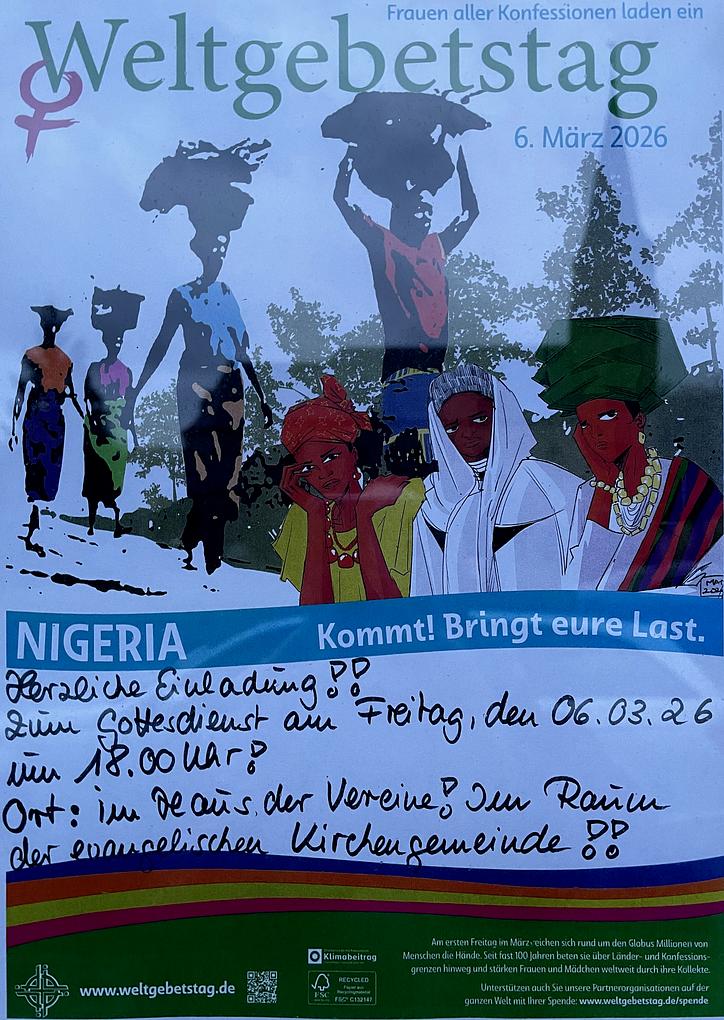 Frauen aller Konfessionen laden ein
Weltgebetstag
6. März 2026
NIGERIA
Kommt! Bringt eure Last.
Herzliche Einladung!!
zum Gottesdienst am Freitag, den 06.03.26
um 18.00 Uhr!
Ort: im Haus der Vereine! Im Raum
der evangelischen Kirchengemeinde!!
Klimabeitrag
www.weltgebetstag.de
FSC
RECYCLED
Papier aus
Recyclingmaterial
FSC® C132147
Am ersten Freitag im März reichen sich rund um den Globus Millionen von
Menschen die Hände. Seit fast 100 Jahren beten sie über Länder- und Konfessions-
grenzen hinweg und stärken Frauen und Mädchen weltweit durch ihre Kollekte.
Unterstützen auch Sie unsere Partnerorganisationen auf der
ganzen Welt mit Ihrer Spende: www.weltgebetstag.de/spende